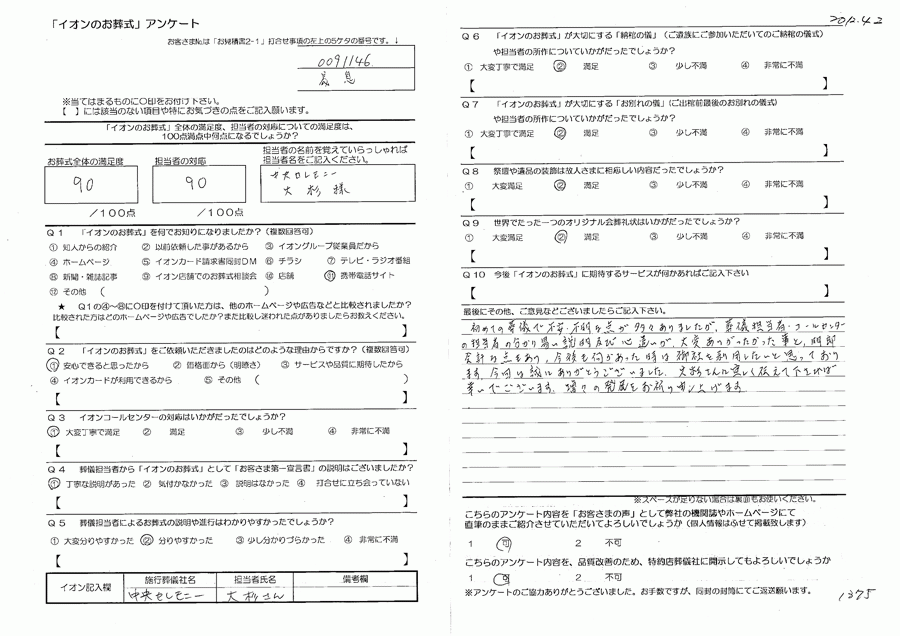 「イオンのお葬式」アンケート
お客さまNo.は「お見積書2-1」打合せ事項の左上の5ケタの番号です。↓
0091146
※当てはまるものに〇印をお付け下さい。
【 】には該当のない項目や特にお気づきの点をご記入願います。
「イオンのお葬式」全体の満足度、担当者の対応についての満足度は、
100点満点中何点になるでしょうか？
お葬式全体の満足度 担当者の対応
担当者の名前を覚えていらっしゃれば
担当者名をご記入ください。
90 90
中央セレモニー
大杉様
／100点 ／100点
Q１ 「イオンのお葬式」を何でお知りになりましたか？（複数回答可）
① 知人からの紹介 ② 以前依頼した事があるから ③ イオングループ従業員だから
④ ホームページ ⑤ イオンカード請求書同封DM ⑥ チラシ ⑦ テレビ・ラジオ番組
⑧ 新聞・雑誌記事 ⑨ イオン店舗でのお葬式相談会 ⑩ 店舗 ⑪ 携帯電話サイト
⑫ その他 （ ）
★ Q１の④～⑪に〇印を付けて頂いた方は、他のホームページや広告などと比較されましたか？
比較された方はどのホームページや広告でしたか？また比較し迷われた点がありましたらお教えください。
【 】
Q２ 「イオンのお葬式」をご依頼いただきましたのはどのような理由からですか？（複数回答可）
① 安心できると思ったから ② 価格面から（明瞭さ） ③ サービスや品質に期待したから
④ イオンカードが利用できるから ⑤ その他 （ ）
【 】
Q３ イオンコールセンターの対応はいかがだったでしょうか？
① 大変丁寧で満足 ② 満足 ③ 少し不満 ④ 非常に不満
【 】
Q４ 葬儀担当者から「イオンのお葬式」として「お客さま第一宣言書」の説明はございましたか？
① 丁寧な説明があった ② 気付かなかった ③ 説明はなかった ④ 打合せに立ち会っていない
【 】
Q５ 葬儀担当者によるお葬式の説明や進行はわかりやすかったでしょうか？
① 大変分りやすかった ② 分りやすかった ③ 少し分かりづらかった ④ 非常に不満
【 】
イオン記入欄 施行葬儀社名 担当者氏名 備考欄
中央セレモニー 大杉さん
2012.4.2
Q６ 「イオンのお葬式」が大切にする「納棺の儀」（ご遺族にご参加いただいてのご納棺の儀式）
や担当者の所作についていかがだったでしょうか？
① 大変丁寧で満足 ② 満足 ③ 少し不満 ④ 非常に不満
【 】
Q７ 「イオンのお葬式」が大切にする「お別れの儀」（ご出棺前最後のお別れの儀式）
や担当者の所作についていかがだったでしょうか？
① 大変丁寧で満足 ② 満足 ③ 少し不満 ④ 非常に不満
【 】
Q８ 祭壇や遺品の装飾は故人さまに相応しい内容だったでしょうか？
① 大変満足 ② 満足 ③ 少し不満 ④ 非常に不満
【 】
Q９ 世界でたった一つのオリジナル会葬礼状はいかがだったでしょうか？
① 大変満足 ② 満足 ③ 少し不満 ④ 非常に不満
【 】
Q１０ 今後「イオンのお葬式」に期待するサービスが何かあればご記入下さい
【 】
最後にその他、ご意見などございましたらご記入下さい。
初めての葬儀で不安・不明な点が多々ありましたが、葬儀担当者・コールセンター
の担当者の分かり易い説明及び心遣いが、大変ありがたかった事と、明朗
会計の点もあり、今後も何かあった時は御社を利用したいと思っており
ます。今回は誠にありがとうございました。大杉さんに宜しく伝えて下されば
幸いでございます。増々の発展をお祈り申し上げます
※スペースが足りない場合は裏面もお使いください。
こちらのアンケート内容を「お客さまの声」として弊社の機関誌やホームページにて
直筆のままご紹介させていただいてよろしいでしょうか（個人情報はふせて掲載致します）
１ 可 ２ 不可
こちらのアンケート内容を、品質改善のため、特約店葬儀社に開示してもよろしいでしょうか
１ 可 ２ 不可
※アンケートのご協力ありがとうございました。お手数ですが、同封の封筒にてご返送願います。
1375